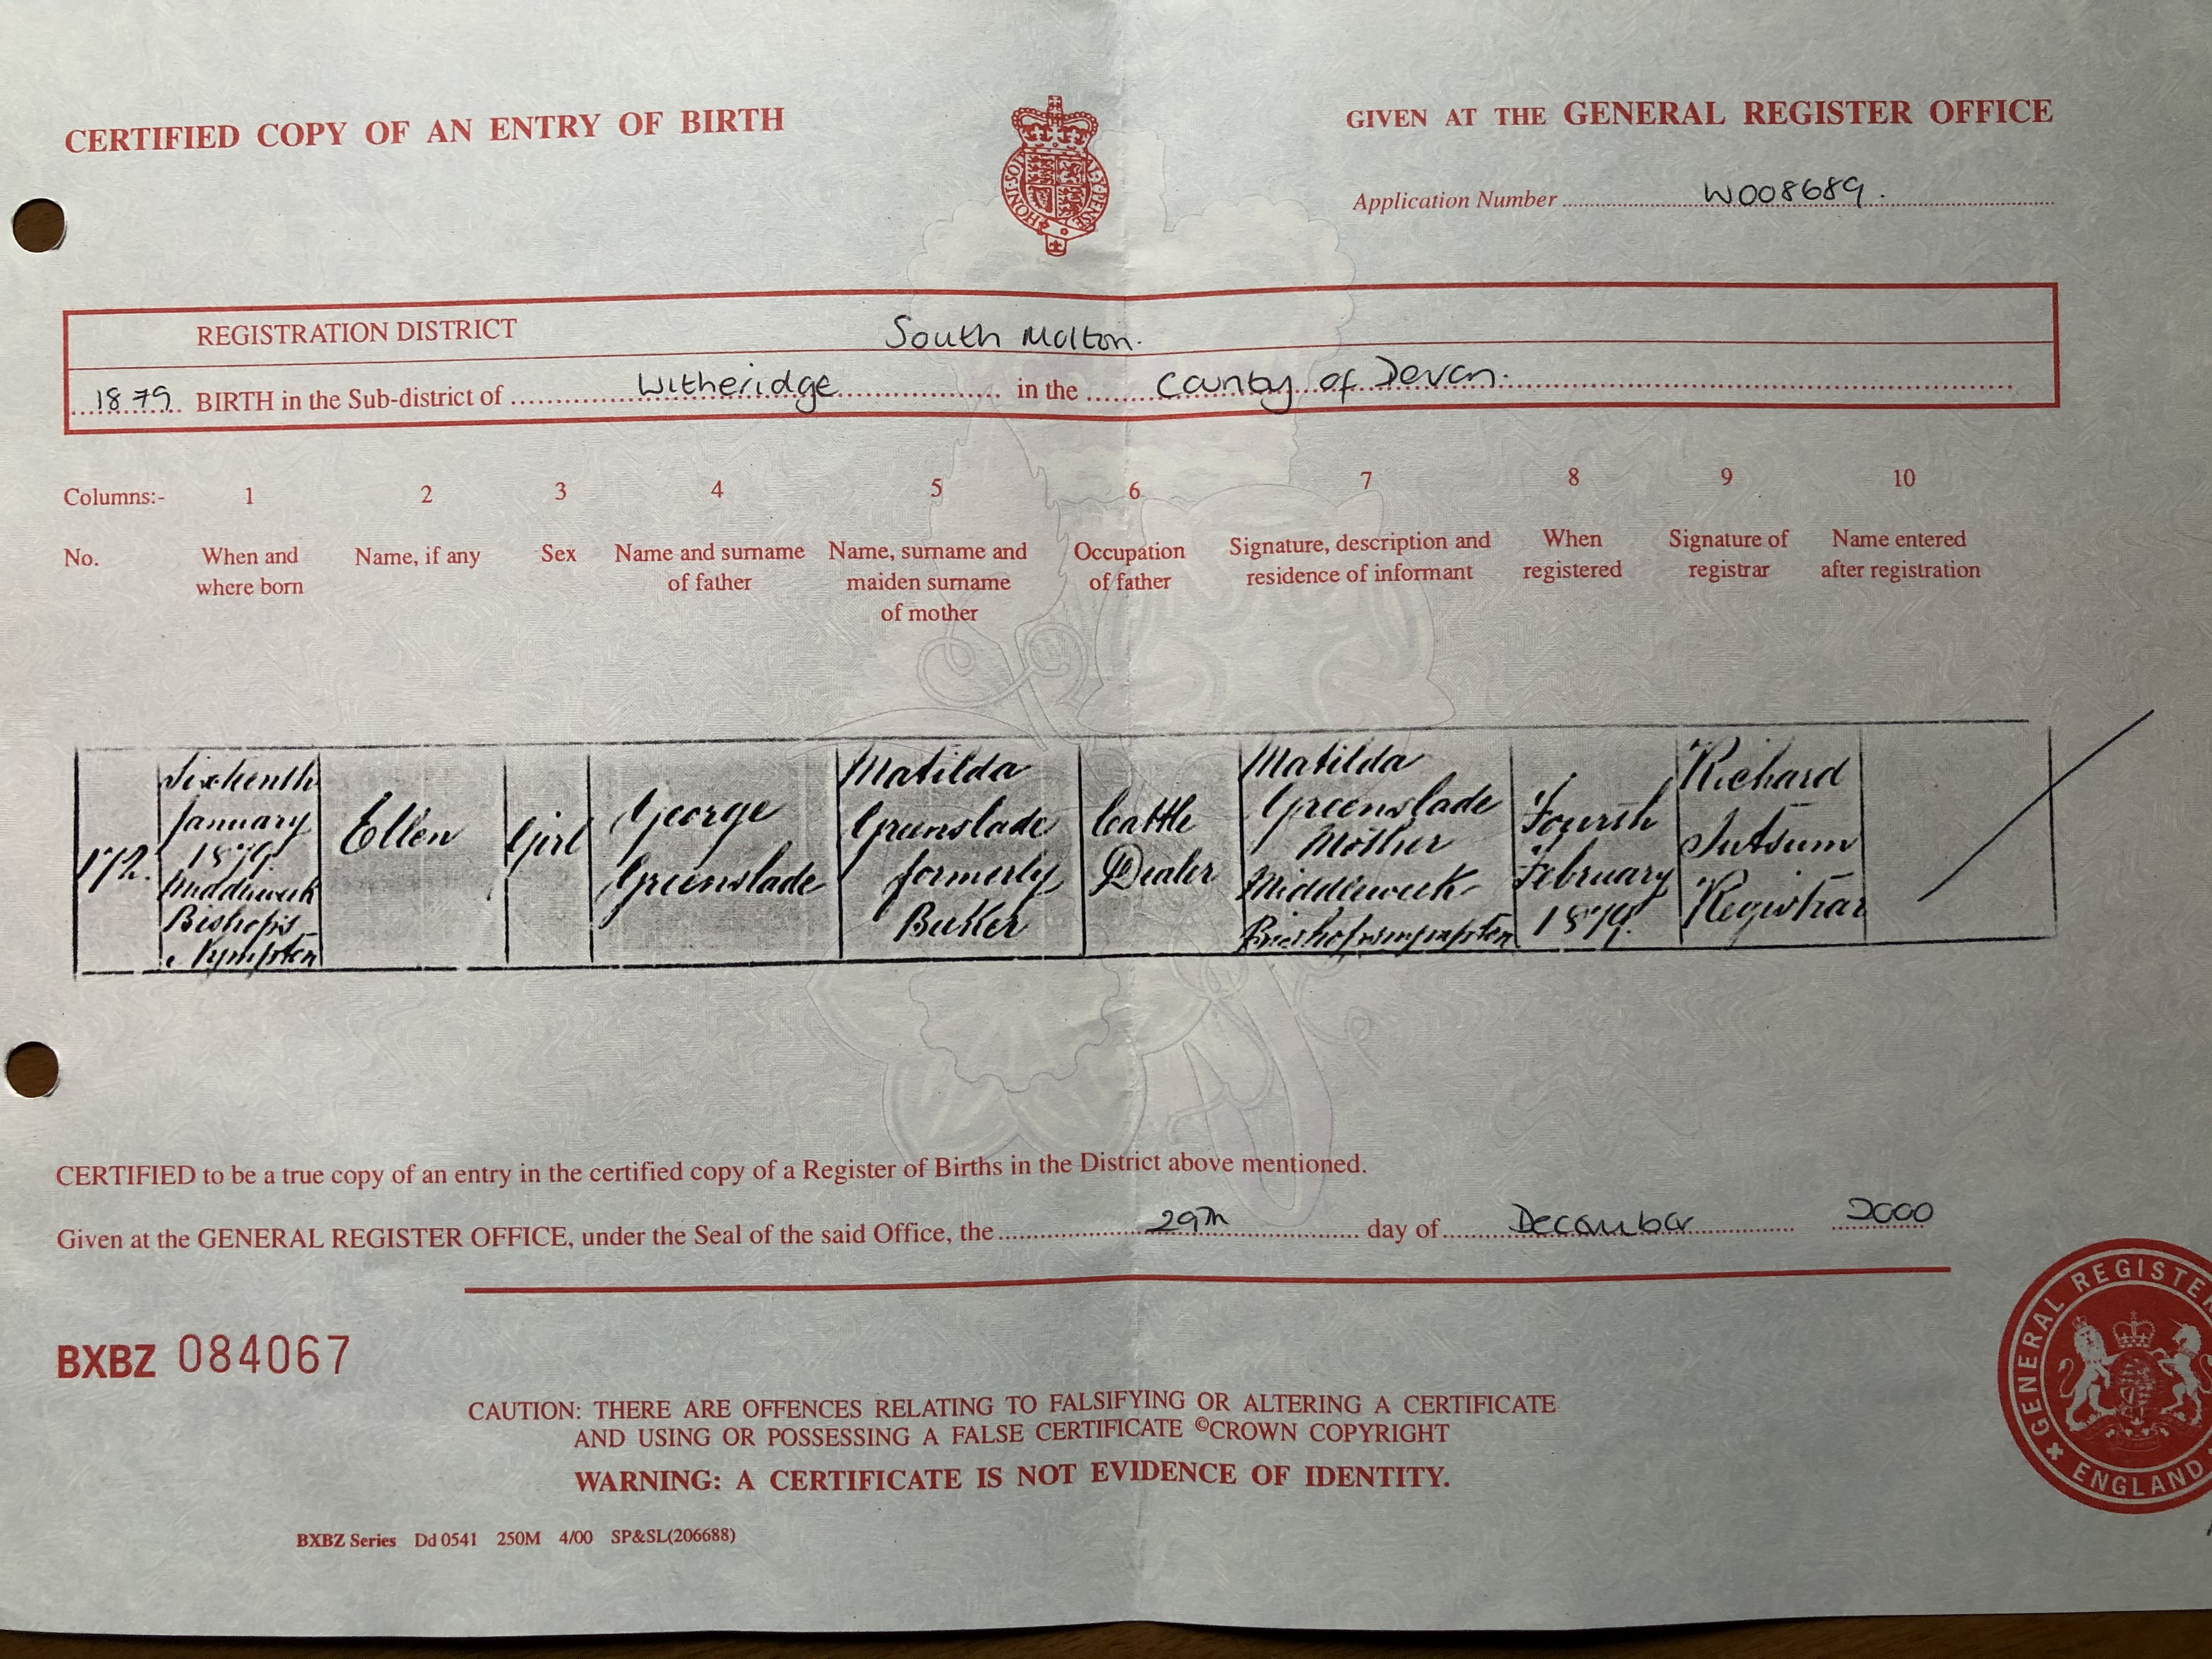 CERTIFIED COPY OF AN ENTRY OF BIRTH
GIVEN AT THE GENERAL REGISTER OFFICE
HONI·SOI AL·Y·PENSE
Application Number W008689.
REGISTRATION DISTRICT South Molton.
1879 BIRTH in the Sub-district of Witheridge in the County of Devon.
Columns:- 1 2 3 4 5 6 7 8 9 10
No.
When and
where born
Name, if any
Sex
Name and surname
of father
Name, surname and
maiden surname
of mother
Occupation
of father
Signature, description and
residence of informant
When
registered
Signature of
registrar
Name entered
after registration
172.
Sixteenth
January
1879
Middleweek
Bishops
Nympton
Ellen
Girl
George
Greenslade
Matilda
Greenslade
formerly
Cattle
Dealer
Matilda
Greenslade
Mother
Middleweek
Bishopsnympton
Fourth
February
1879.
Richard
Registrar
CERTIFIED to be a true copy of an entry in the certified copy of a Register of Births in the District above mentioned.
Given at the GENERAL REGISTER OFFICE, under the Seal of the said Office, the 29th day of December 2000
BXBZ 084067
GENERAL REGISTER
ENGLAND
CAUTION: THERE ARE OFFENCES RELATING TO FALSIFYING OR ALTERING A CERTIFICATE
AND USING OR POSSESSING A FALSE CERTIFICATE ©CROWN COPYRIGHT
WARNING: A CERTIFICATE IS NOT EVIDENCE OF IDENTITY.
BXBZ Series Dd 0541 250M 4/00 SP&SL(206688)